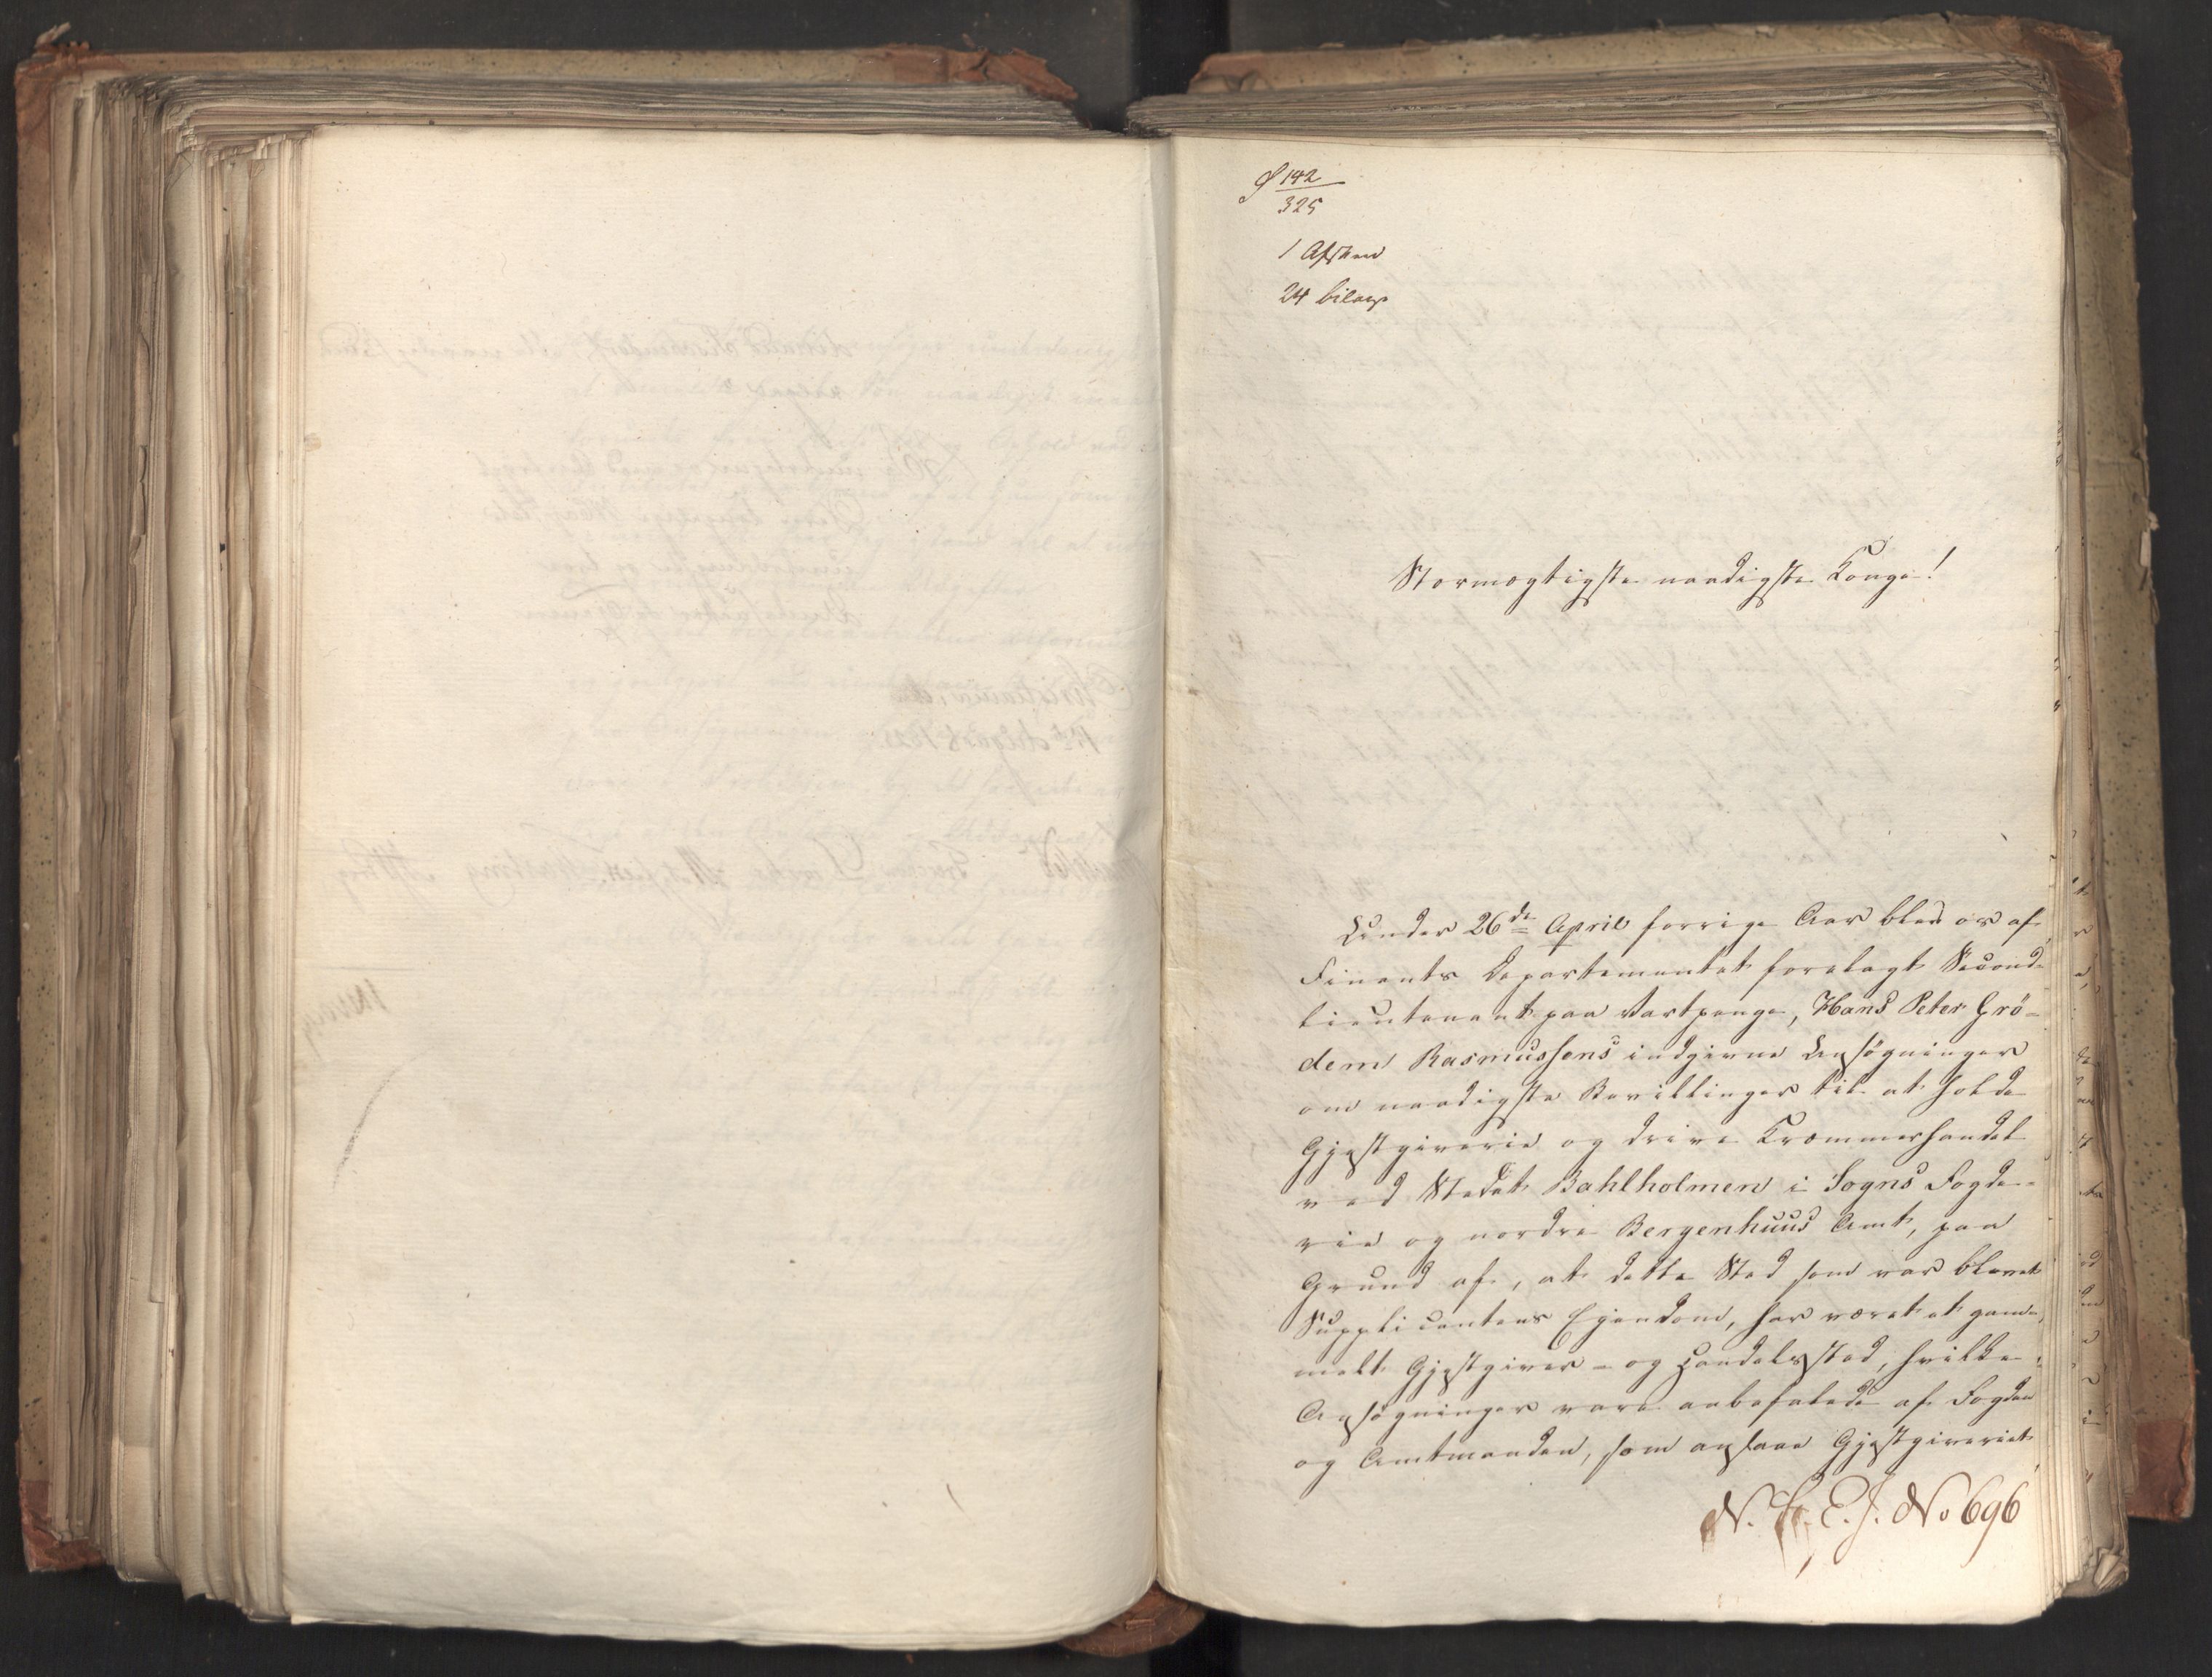 142
325
1 Afskrivt
24 bilag
Stormægtigste naadigste Konge!
Under 26de April forrige Aar blev os af
Finants Departementet forelagt Second-
lieutenant paa Vartpenge, Hans Peter Grö-
dem Rasmussens indgivne Ansøgninger
om naadigste Bevillinger til at holde
Gjæstgiverie og drive Kræmmerhandel
ved Stedet Bahlholmen i Sogns Fogde-
rie og nordre Bergenhuus Amt, paa
Grund af, at dette Sted som var blevet
Supplicantens Ejendom, har været et gam-
melt Gjæstgiver- og Handelssted, hvilke
Ansøgninger vare anbefalede af Fogden
og Amtmanden, som ansaae Gjæstgiveriet
N. E. J. No 696